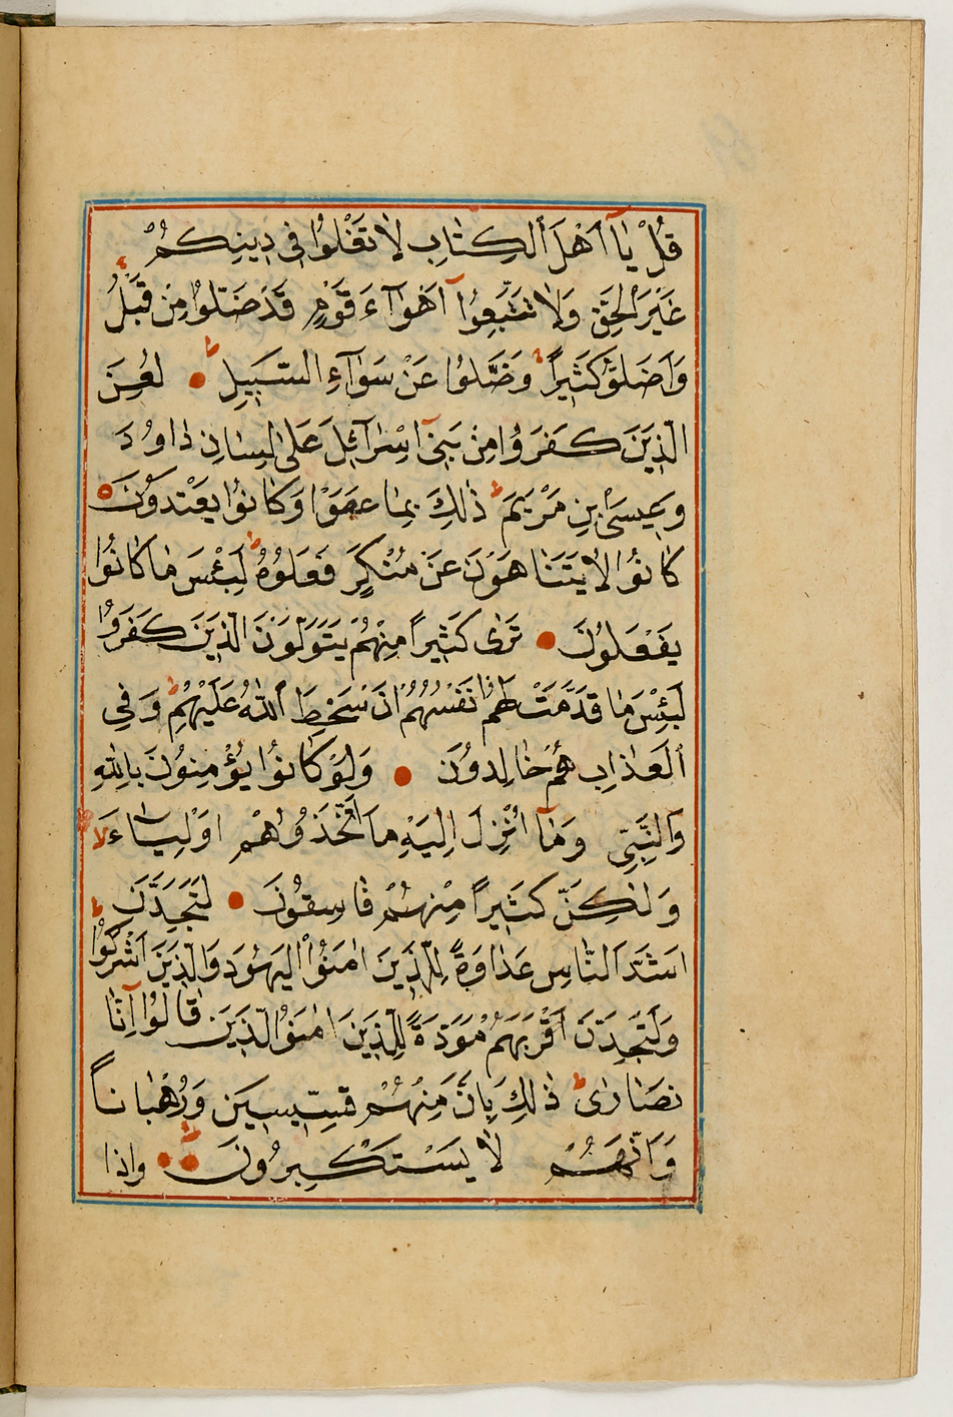 قُلْ يَا آاَهْلَ ٱلْكِتَابِ لَا تَغْلُوا فِي دِينِكُمْ
غَيْرَ الْحَقِّ وَلَا تَتَّبِعُوا اَهْوَآءَ قَوْمٍ قَدْ ضَلُّوا مِنْ قَبْلُ
وَاَضَلُّوا كَثِيرًا وَضَلُّوا عَنْ سَوَآءِ السَّبِيلِ لُعِنَ
الَّذِينَ كَفَرُوا مِنْ بَنِي اِسْرَآئِلَ عَلَى لِسَانِ دَاوُدَ
وَعِيسَى بْنِ مَرْيَمَ ذٰلِكَ بِمَا عَصَوْا وَكَانُوا يَعْتَدُونَ
كَانُوا لَا يَتَنَاهَوْنَ عَنْ مُنْكَرٍ فَعَلُوهُ لَبِئْسَ مَا كَانُوا
يَفْعَلُونَ تَرٰى كَثِيرًا مِنْهُمْ يَتَوَلَّوْنَ الَّذِينَ كَفَرُوا
لَبِئْسَ مَا قَدَّمَتْ لَهُمْ اَنْفُسُهُمْ اَنْ سَخِطَ ٱللّٰهُ عَلَيْهِمْ وَفِي
ٱلْعَذَابِ هُمْ خَالِدُونَ وَلَوْ كَانُوا يُؤْمِنُونَ بِاللّٰهِ
وَٱلنَّبِيِّ وَمَآ اُنْزِلَ اِلَيْهِ مَا اتَّخَذُوهُمْ اَوْلِيَاءَ لا
وَلٰكِنَّ كَثِيرًا مِنْهُمْ فَاسِقُونَ لَتَجِدَنَّ
اَشَدَّ النَّاسِ عَدَاوَةً لِلَّذِينَ اٰمَنُوا الْيَهُودَ وَالَّذِينَ اَشْرَكُوا
وَلَتَجِدَنَّ اَقْرَبَهُمْ مَوَدَّةً لِلَّذِينَ اٰمَنُوا الَّذِينَ قَالُوا اِنَّا
نَصَارٰى ذٰلِكَ بِاَنَّ مِنْهُمْ قِسِّيسِينَ وَرُهْبَانًا
وَاَنَّهُمْ لَا يَسْتَكْبِرُونَ وَاِذَا